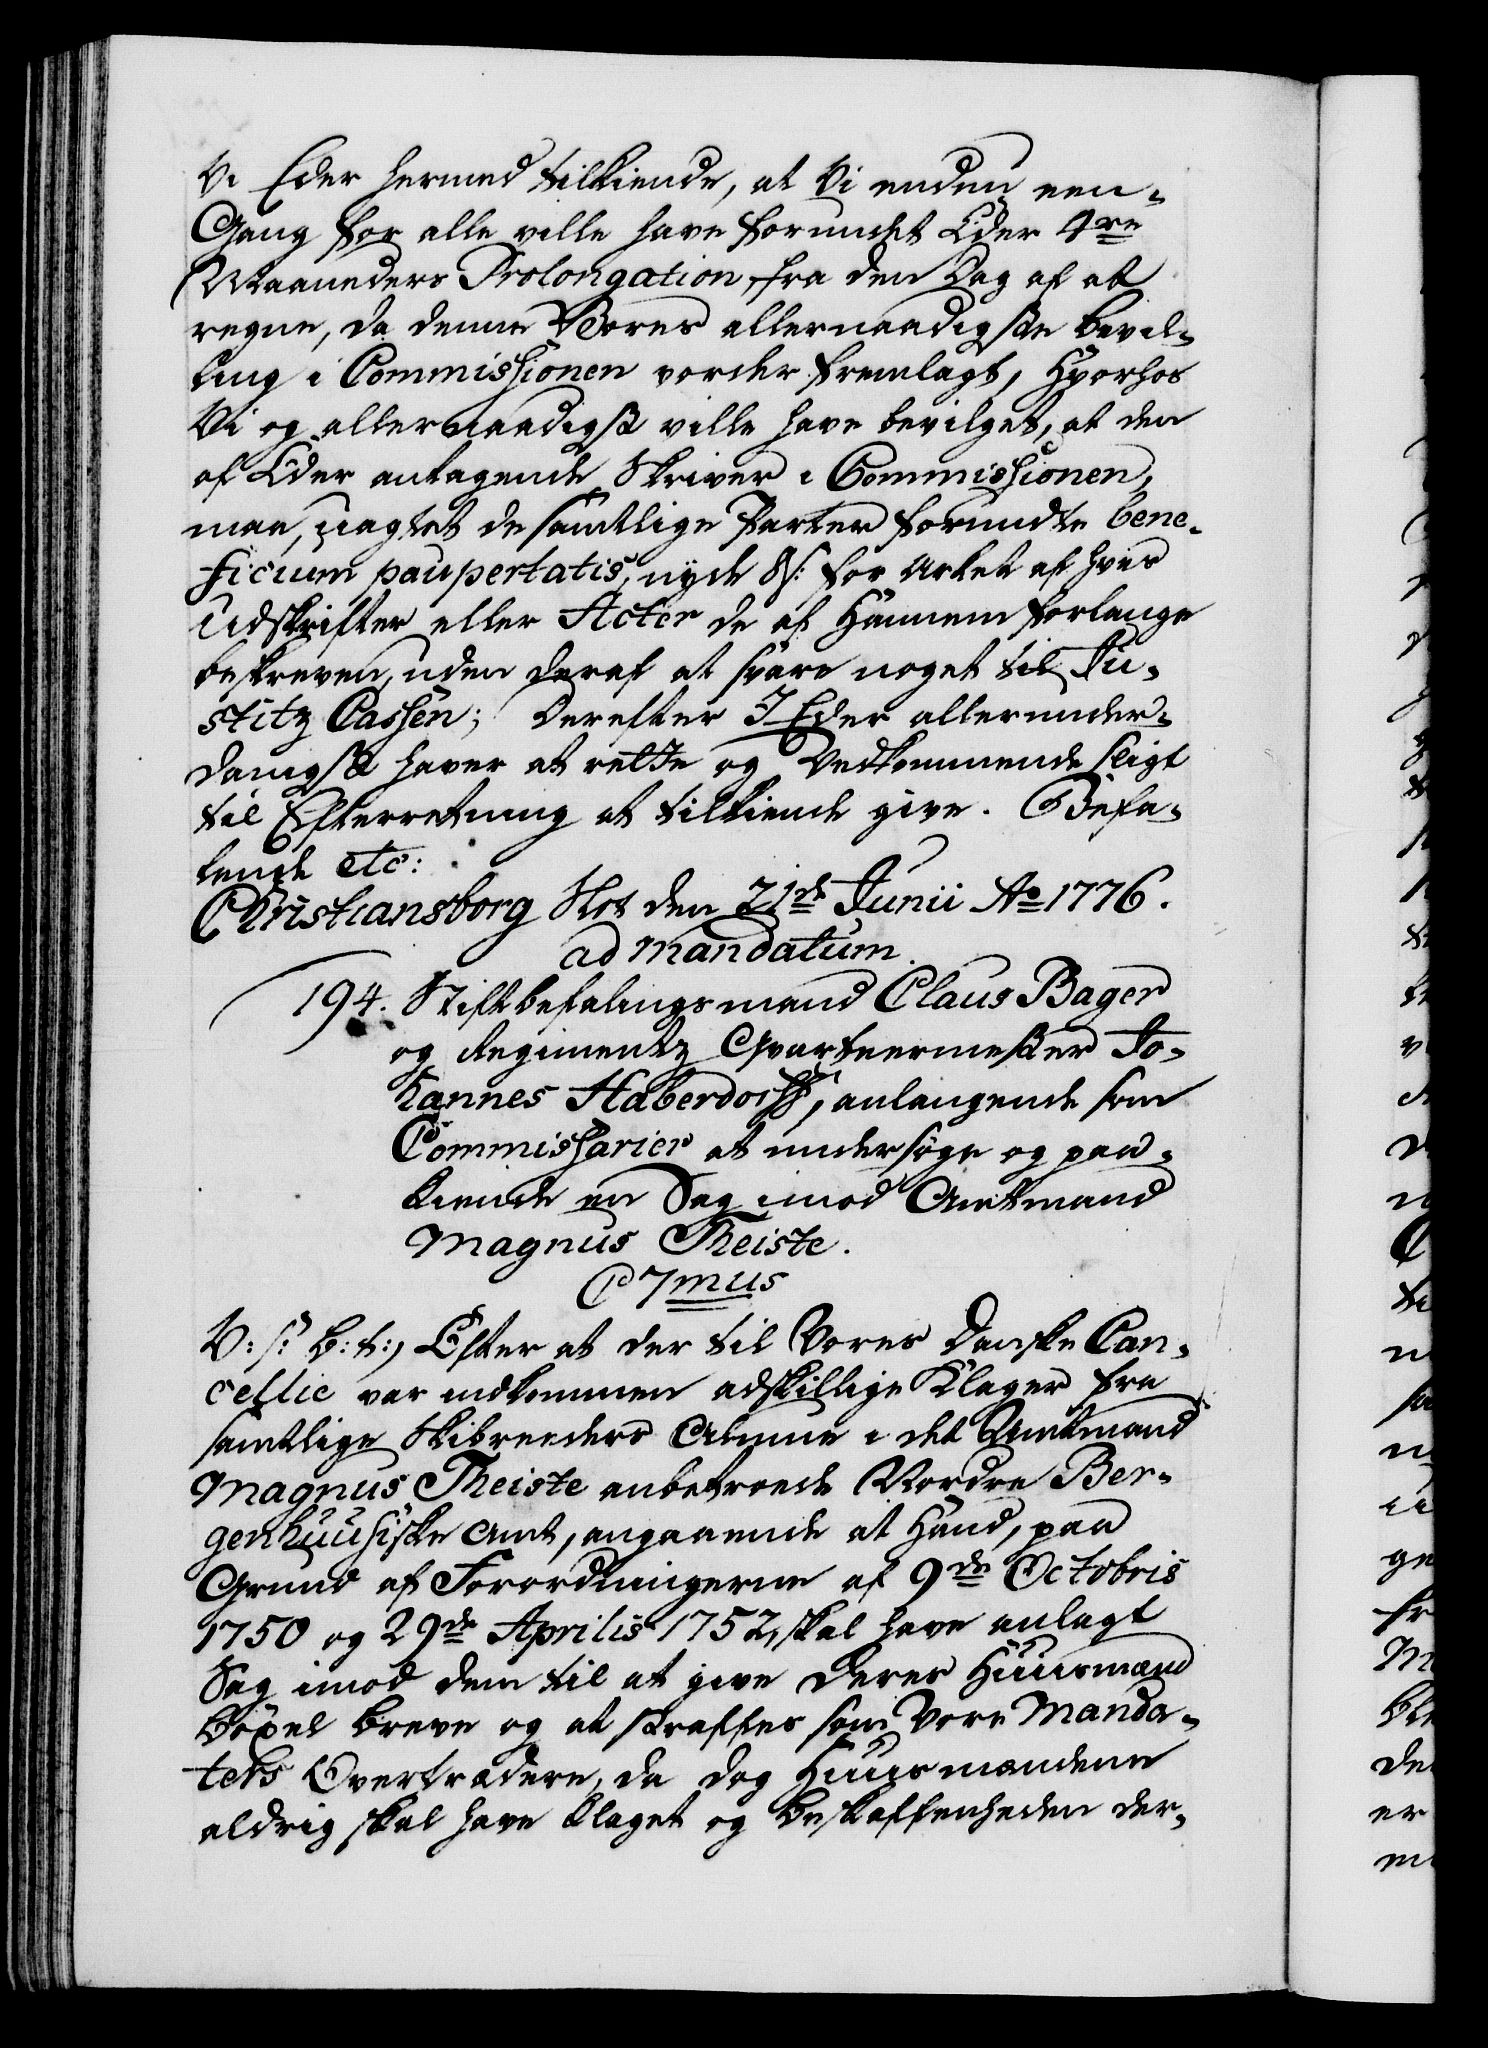 Vi Eder hermed tilkiende, at Vi enden een-
Gang for alle ville have forundt Eder 4re
Maaneders Prolongation, fra den Dag af at
regne, da denne Vores allernaadigste bevil-
ling i Commissionen vorder fremlagt, Hvorhos
Vi og allernaadigst ville have bevilget, at den
af Eder antagende Skriver i Commissionen,
maa, uagtet de samtlige Parter forundte bene-
ficium paupertatis, nyde 8 s: for Arket af hvis
Udskrifter eller Acter de af Hannem forlange
beskreven, uden deraf at svare noget til Ju-
stitz Cassen; Derefter I Eder allerunder-
danigst haver at rette og Vedkommende sligt
til Efterretning at tilkiende give. Befa-
lende etc:
Christiansborg Slot den 21de Junii Ao 1776.
ad mandatum.
194. Stiftbefalingsmand Claus Bager
og Regimentz Qvarteermester Jo-
hannes Haberdorff, anlangende som
Commissarier at undersöge og paa-
kiende en Sag imod Amtmand
Magnus Theiste.
C 7mus
V: s: b: t:, Efter at der til Vores Danske Can-
cellie var indkommen adskillige Klager fra
samtlige Skibreeders Almue i det Amtmand
Magnus Theiste anbetroede Nordre Ber-
genhuusiske Amt, angaaende at Hand, paa
Grund af Forordningerne af 9de Octobris
1750 og 29de Aprilis 1752, skal have anlagt
Sag imod dem til at give deres Huusmænd
böxel breve og at straffes som Vore Manda-
ters Overtrædere, da dog Huusmændene
aldrig skal have klaget og beskaffenheden der-